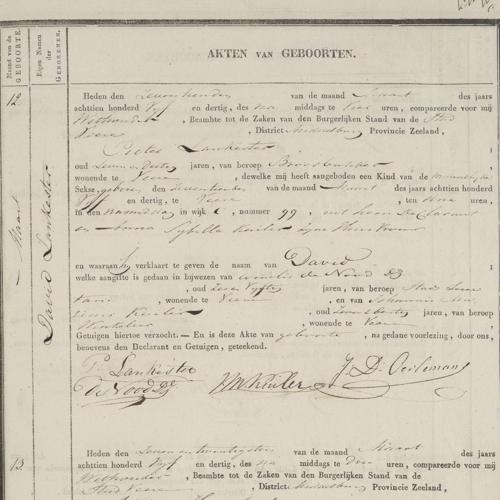 AKTEN VAN GEBOORTEN.
Maand van de GEBOORTE.
Eigen Namen der GEBORENEN.
12
Maart
David Lankester
Heden den zeventienden van de maand Maart des jaars
achttien honderd Vijf en dertig, des na middags te vier uren, compareerde voor mij
Wethouder, Beambte tot de Zaken van den Burgerlijken Stand van de Stad
Veere, District Middelburg Provincie Zeeland,
Pieter Lankester
oud jaren, van beroep
wonende te Veere, dewelke mij heeft aangeboden een Kind van de mannelijke
Sekse, geboren den zeventienden van de maand Maart des jaars achttien honderd
Vijf en dertig, te Veere, ten uren
in den namiddag in wijk nummer 99, uit hem Declarant
en Anna Sybilla Keuler zijne Huisvrouw
en waaraan hij verklaart te geven de naam van David
welke aangifte is gedaan in bijwezen van Cornelis de Nood
, oud jaren, van beroep Stads
, wonende te Veere, en van Johannis
Keuler, oud jaren, van beroep
Winkelier, wonende te Veere
Getuigen hiertoe verzocht. — En is deze Akte van geboorte, na gedane voorlezing, door ons,
benevens den Declarant en Getuigen, geteekend.
P. Lankester
C. D. Nood
J M Keuler
J. D. Oerlemans
13
Heden den zeven en twintigsten van de maand Maart des jaars
achttien honderd Vijf en dertig, des na middags te drie uren, compareerde voor mij
Wethouder, Beambte tot de Zaken van den Burgerlijken Stand van de
Stad Veere, District Middelburg Provincie Zeeland,